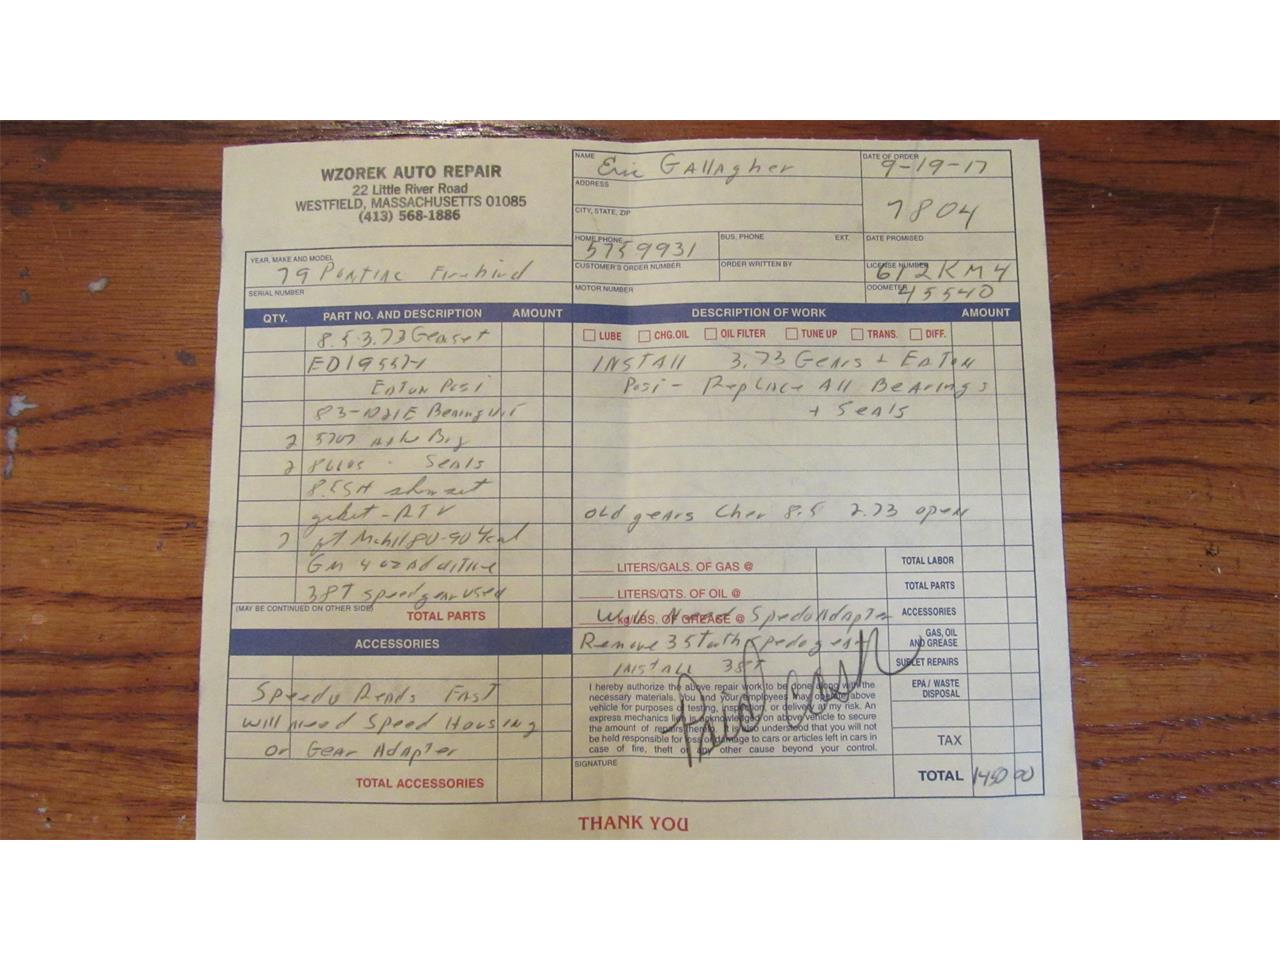 WZOREK AUTO REPAIR
22 Little River Road
WESTFIELD, MASSACHUSETTS 01085
(413) 568-1886
NAME Eric Gallagher
DATE OF ORDER 9-19-17
ADDRESS
7804
CITY, STATE, ZIP
HOME PHONE
BUS. PHONE EXT.
DATE PROMISED
YEAR, MAKE AND MODEL
79 Pontiac Firebird
CUSTOMER'S ORDER NUMBER
ORDER WRITTEN BY
LICENSE NUMBER 612KM4
SERIAL NUMBER
MOTOR NUMBER
ODOMETER 45540
QTY. PART NO. AND DESCRIPTION AMOUNT
8.5 3.73 Gearset
Eaton Posi
Bearing
2 5707
2 Seals
8.5
RTV
2 80-90
GM 4 oz Additive
38T speed gear used
(MAY BE CONTINUED ON OTHER SIDE)
TOTAL PARTS
ACCESSORIES
Speedo Reads Fast
will need Speed Housing
or Gear Adapter
TOTAL ACCESSORIES
DESCRIPTION OF WORK AMOUNT
LUBE CHG.OIL OIL FILTER TUNE UP TRANS. DIFF.
INSTALL 3.73 Gears + EATON
Posi - Replace All Bearings
+ Seals
old gears Chev 8.5 2.73 open
LITERS/GALS. OF GAS @
TOTAL LABOR
LITERS/QTS. OF OIL @
TOTAL PARTS
kg/LBS. OF GREASE @
Will Need Speedo Adapter
ACCESSORIES
Remove 35 tooth Speedo gear
GAS, OIL
AND GREASE
INSTALL 38T
SUBLET REPAIRS
I hereby authorize the above repair work to be done along with the
necessary materials. You and your employees may operate above
vehicle for purposes of testing, inspection, or delivery at my risk. An
express mechanics lien is acknowledged on above vehicle to secure
the amount of repairs thereto. It is also understood that you will not
be held responsible for loss or damage to cars or articles left in cars in
case of fire, theft or any other cause beyond your control.
Paid Cash
EPA / WASTE
DISPOSAL
TAX
SIGNATURE
TOTAL 1450 00
THANK YOU